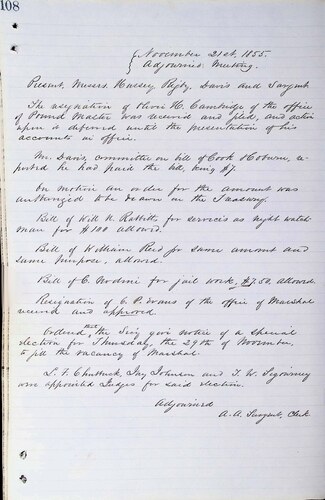 108
November 21st, 1855.
Adjourned Meeting.
Present, Messrs. Hussey, Rigby, Davis and Sargent
The resignation of Oliver H. Cambridge of the office
of Pound Master was received and filed, and action
upon it deferred until the presentation of his
accounts in office.
Mr. Davis, committee on bill of Cook & re-
ported he had paid the bill, being $7.
On motion an order for the amount was
authorized to be drawn on the Treasury.
Bill of Will N. for services as night watch-
man for $100 allowed.
Bill of William Reid for same amount and
same purpose, allowed.
Bill of C. for jail work, $7.50, allowed
Resignation of C. P. Evans of the office of Marshal
received and approved
Ordered, that the give notice of a special
election for Thursday, the 29th of November,
to fill the vacancy of Marshal.
L. F. Jay Johnson and T. W. Sigourney
were appointed Judges for said election.
Adjourned
A. A. Sargent, Clerk